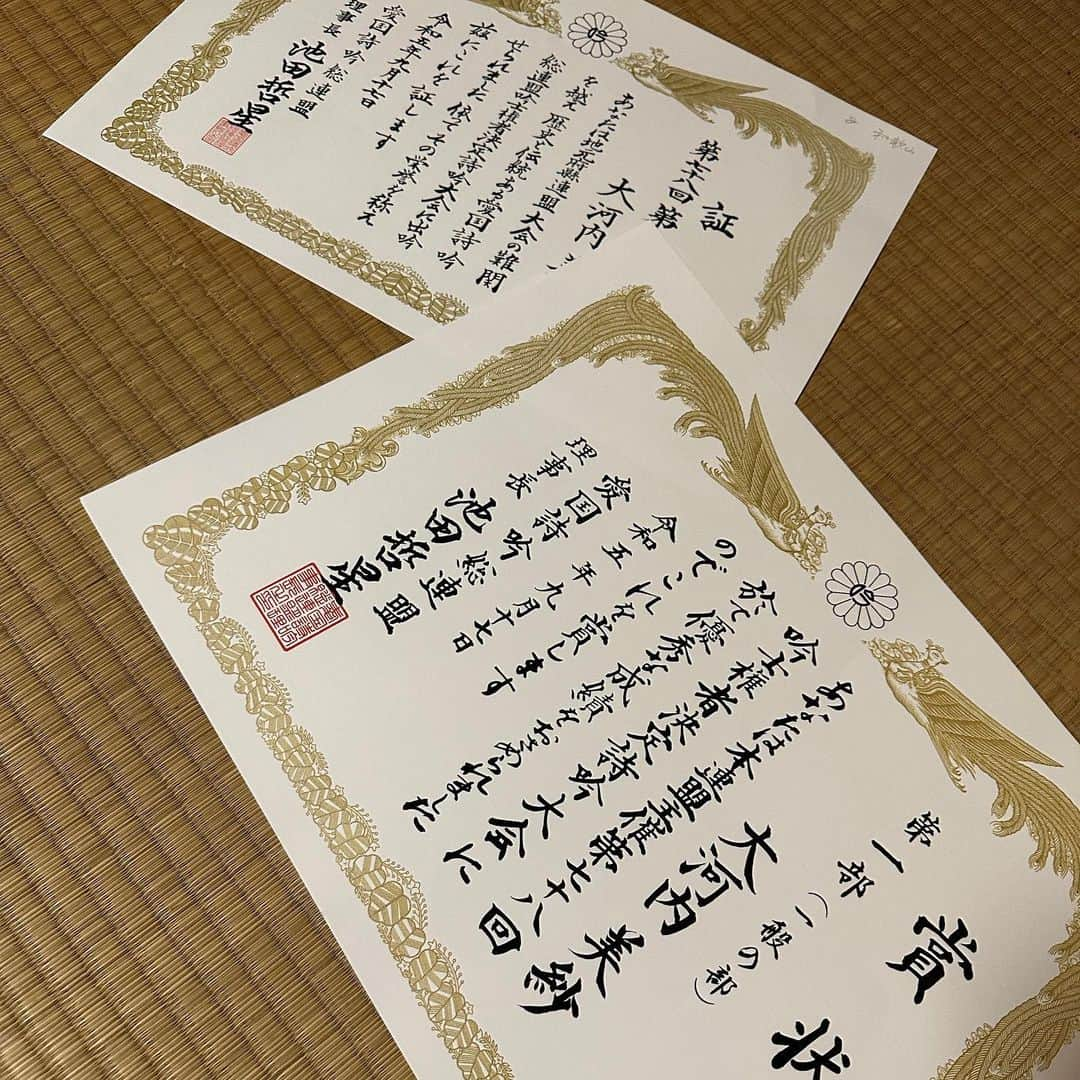 証
第七十八回 第
大河内
あなたは地元府縣連盟大会の難関
を越え 歴史と伝統ある愛国詩吟
総連盟吟士権者決定詩吟大会に出吟
せられました 依てその栄誉を称え
茲にこれを証します
令和五年九月十七日
愛国詩吟総連盟
理事長 池田哲星
和歌山
賞状
第一部（一般の部）
大河内 美紗
あなたは本連盟主催第七十八回
吟士権者決定詩吟大会に
於て優秀な成績をおさめられました
のでこれを賞します
令和五年九月十七日
愛国詩吟総連盟
理事長 池田哲星